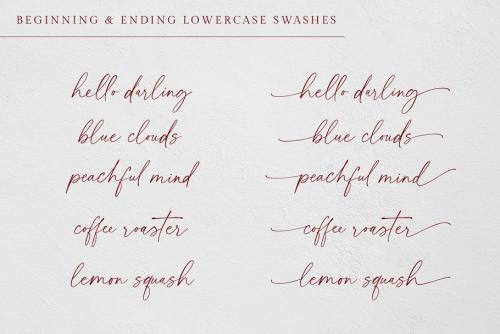 BEGINNING & ENDING LOWERCASE SWASHES
hello darling hello darling
blue clouds blue clouds
peachful mind peachful mind
coffee roaster coffee roaster
lemon squash lemon squash